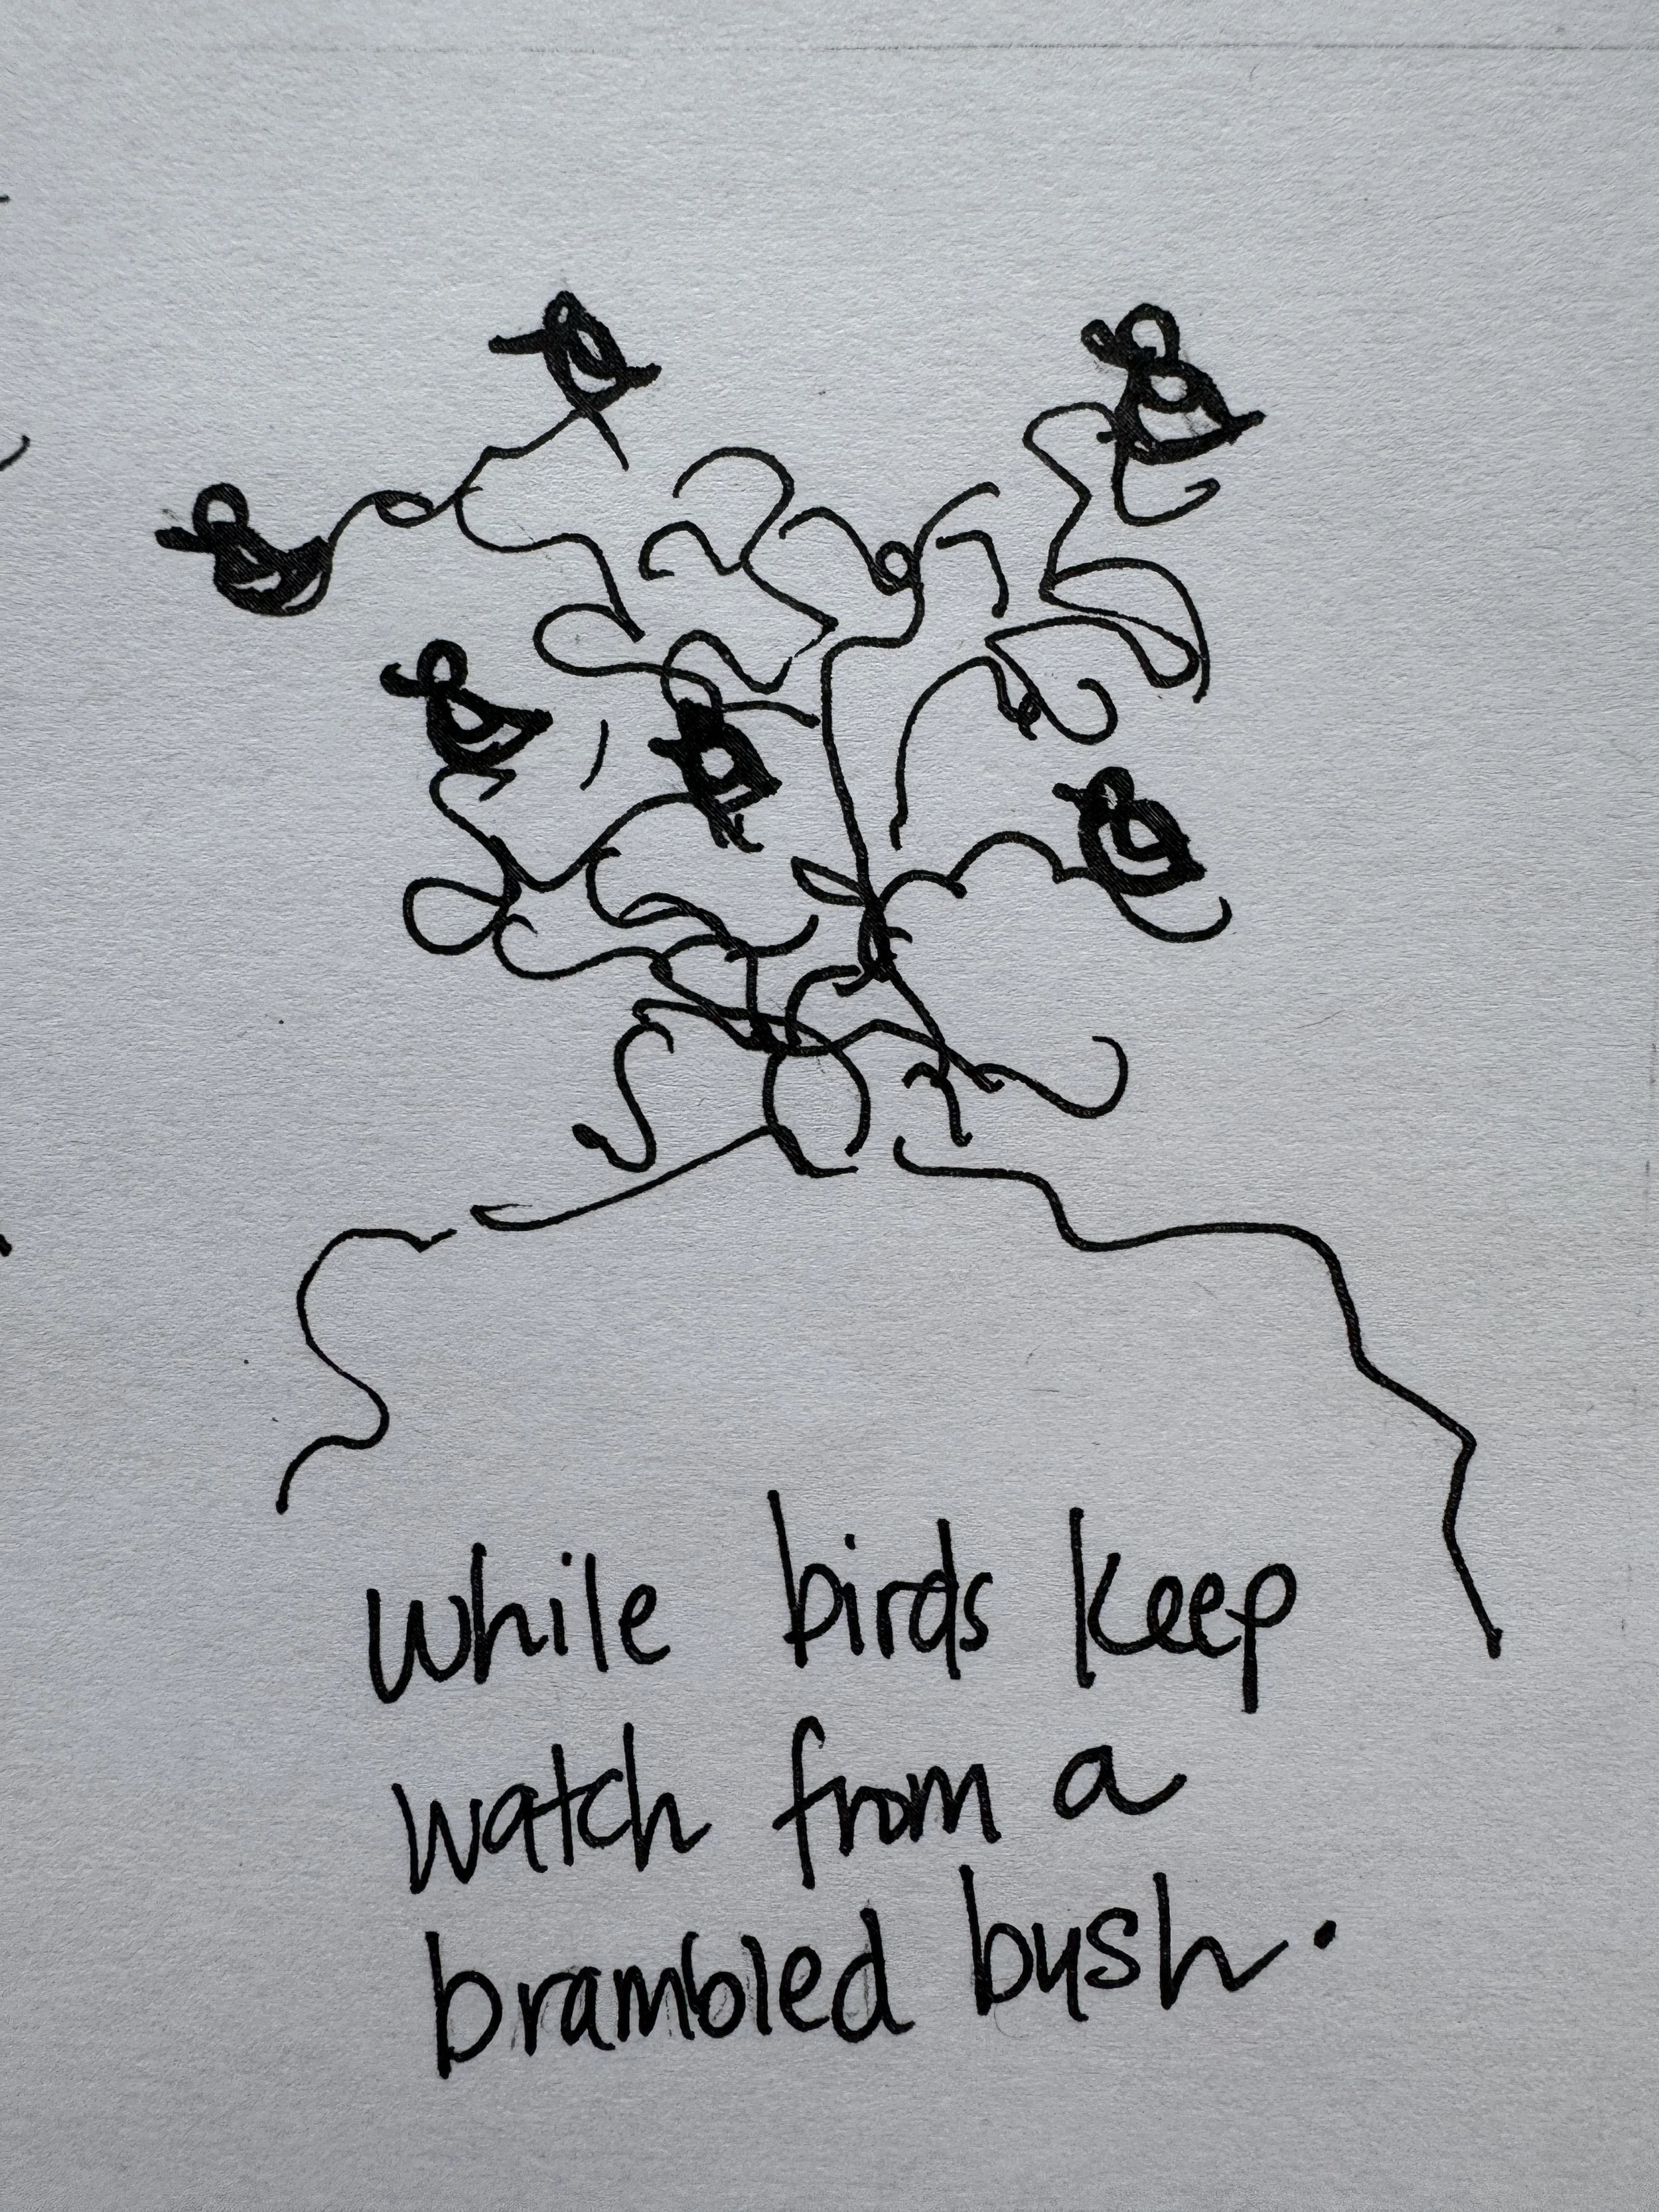 while birds keep
watch from a
brambled bush.